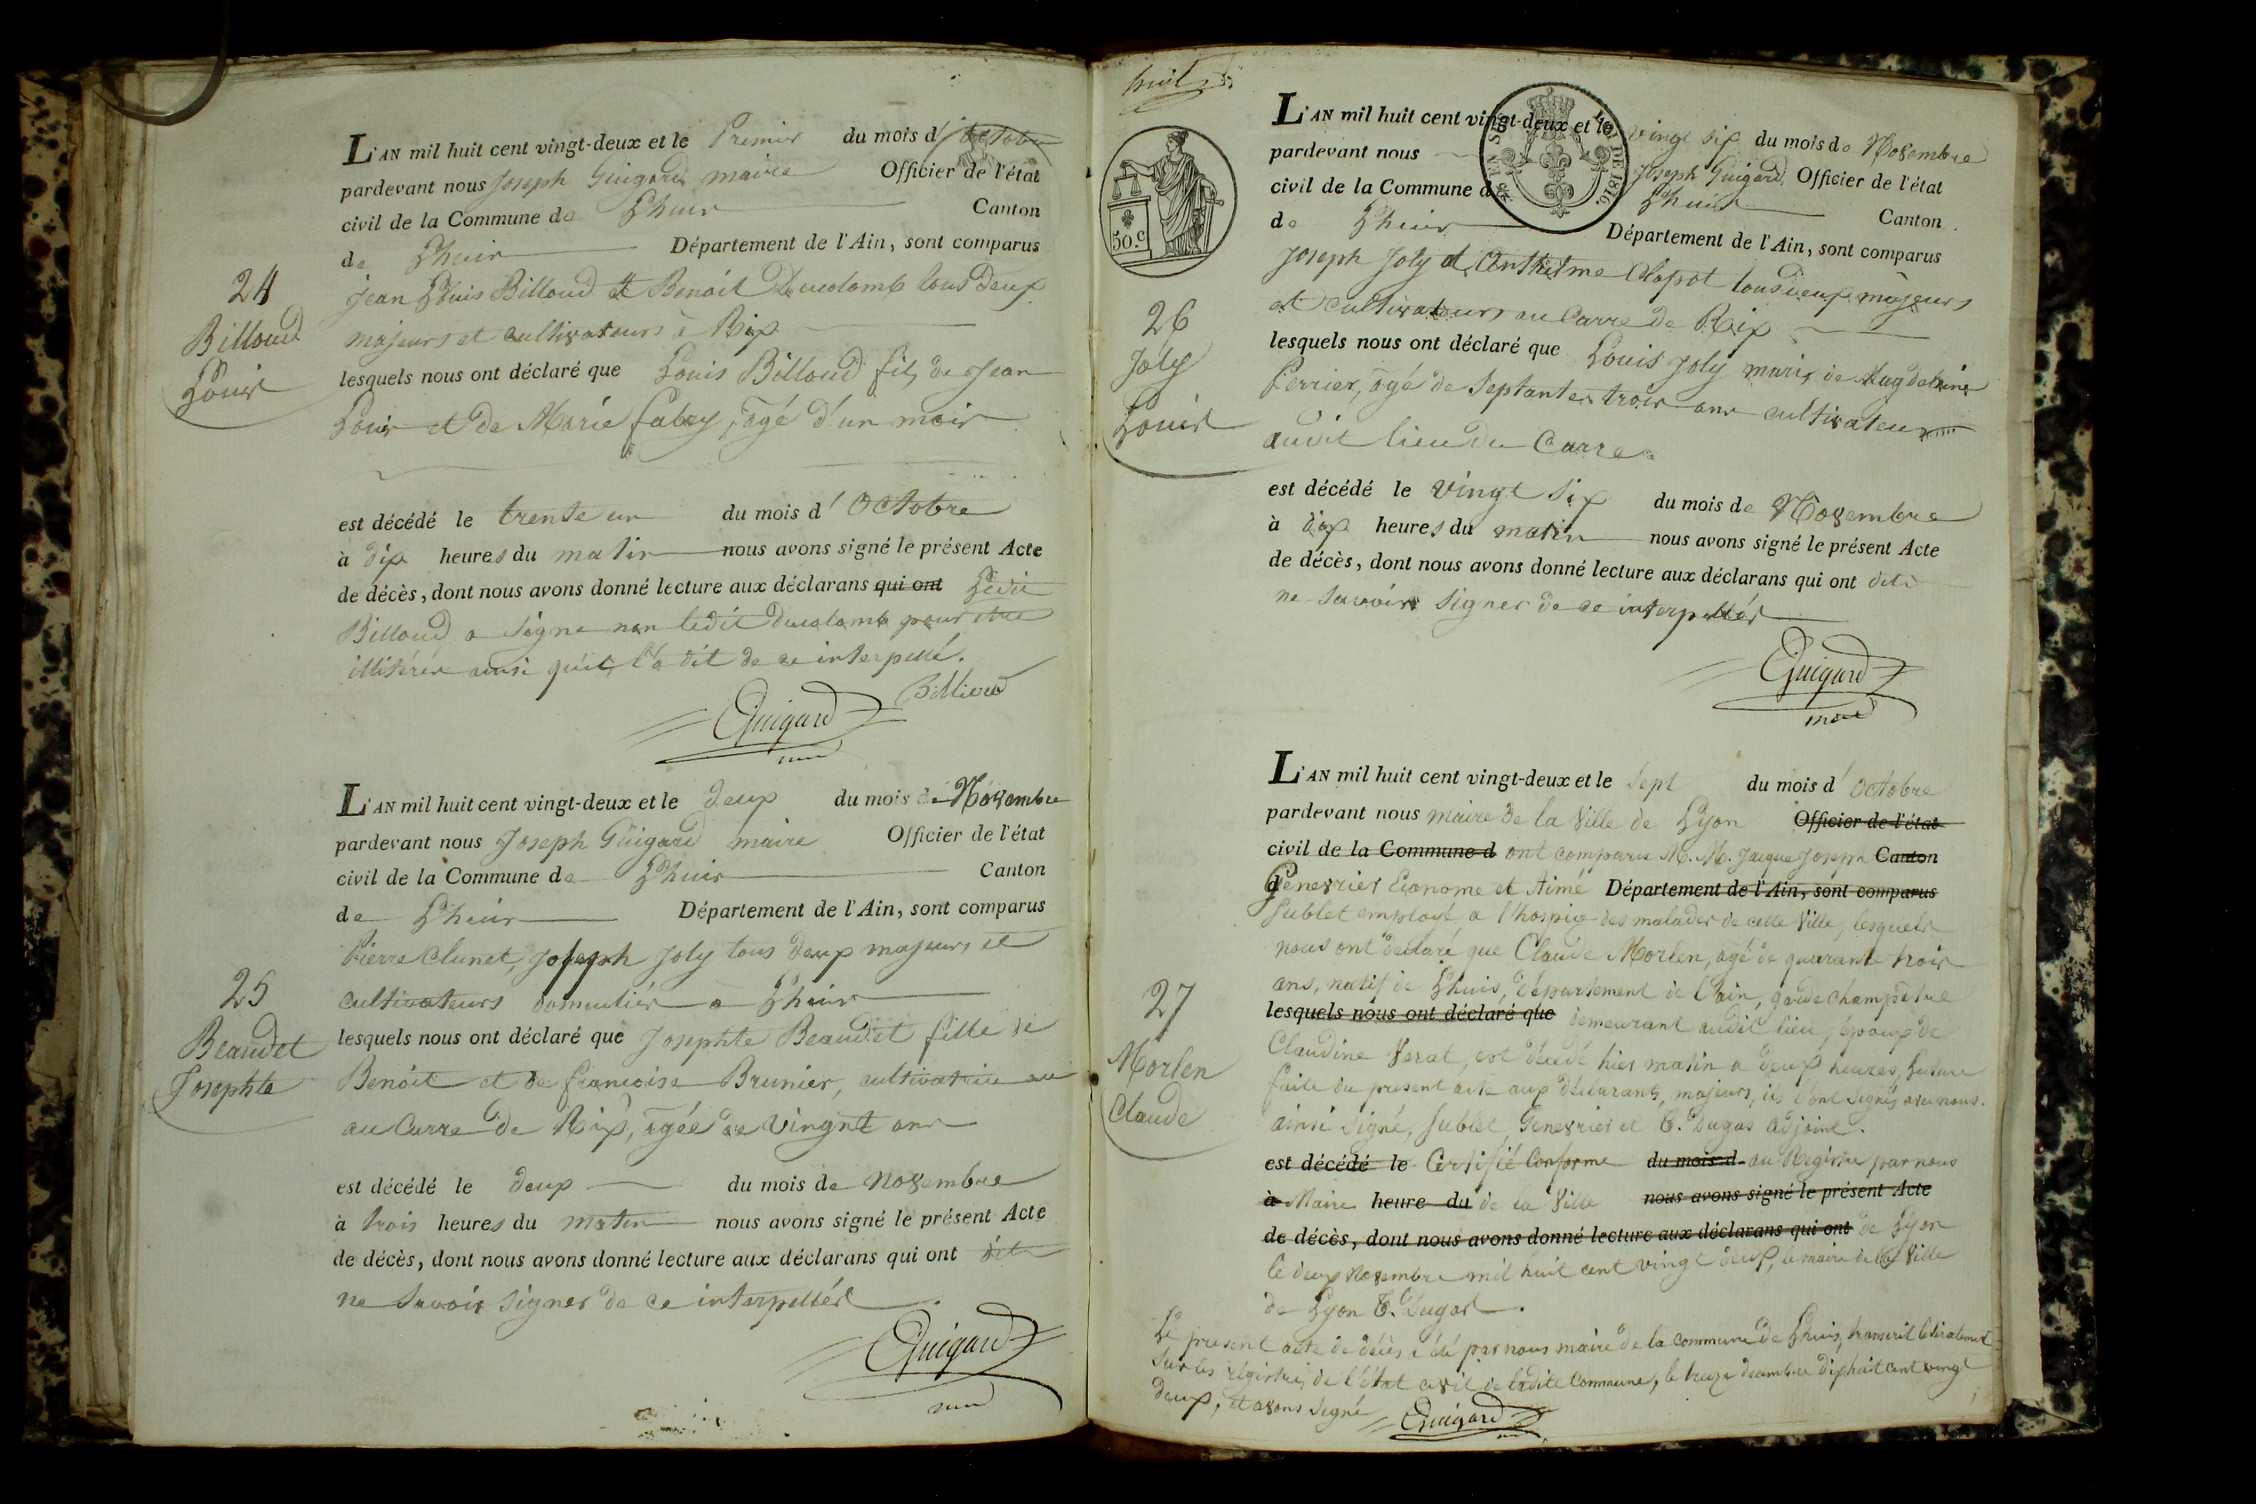 L'AN mil huit cent vingt-deux et le Premier du mois d'octobre
pardevant nous Joseph Guigard maire Officier de l'état
civil de la Commune de Lhuis Canton
de Lhuis Département de l'Ain, sont comparus
24
Billoud
Louis
jean Louis Billoud et Benoit Ducolomb tous deux
majeurs et cultivateurs à Rix
lesquels nous ont déclaré que Louis Billoud fils de Jean
Louis et de Marie fabry, agé d'un mois
est décédé le trente un du mois d'Octobre
à dix heures du matin nous avons signé le présent Acte
de décès, dont nous avons donné lecture aux déclarans qui ont Ledit
Billoud a signé non ledit Ducolomb pour être
illitéré ainsi qu'il l'a dit de ce interpellé.
Billioud
Guigard
L'AN mil huit cent vingt-deux et le deux du mois de Novembre
pardevant nous Joseph Guigard maire Officier de l'état
civil de la Commune de Lhuis Canton
de Lhuis Département de l'Ain, sont comparus
25
Beaudet
Josephte
Pierre Clunet, Joseph Joly tous deux majeurs et
cultivateurs domiciliés à Lhuis
lesquels nous ont déclaré que Josephte Beaudet fille de
Benoit et de francoise Brunier, cultivatrice au
au Carre de Rix, agée de vingnt ans
est décédé le deux du mois de novembre
à trois heures du matin nous avons signé le présent Acte
de décès, dont nous avons donné lecture aux déclarans qui ont dit
ne savoir signer de ce interpellés.
Guigard
huit
50.C
LOI DE 1816.
L'AN mil huit cent vingt-deux et le vingt six du mois de Novembre
pardevant nous Joseph Guigard Officier de l'état
civil de la Commune d Lhuis Canton
de Lhuis Département de l'Ain, sont comparus
26
Joly
Louis
Joseph Joly et Anthelme Clapot tous deux majeurs
et cultivateurs au Carre de Rix
lesquels nous ont déclaré que Louis Joly mari de Magdelaine
Perrier, agé de septante trois ans cultivateur
audit lieu du Carre
est décédé le vingt six du mois de Novembre
à dix heures du matin nous avons signé le présent Acte
de décès, dont nous avons donné lecture aux déclarans qui ont dit
ne savoir signer de ce interpellés
Guigard
L'AN mil huit cent vingt-deux et le sept du mois d'octobre
pardevant nous maire de la Ville de Lyon Officier de l'état
civil de la Commune d ont comparu M. M. Jacque Joseph Canton
d Genevrier Econome et Aimé Département de l'Ain, sont comparus
27
Morlen
Claude
Sublet employé a l'hospice des malades de cette Ville, lesquels
nous ont declaré que Claude Morlen, agé de quarante trois
ans, natif de Lhuis, Département de l'ain, garde champêtre
lesquels nous ont déclaré que demeurant audit lieu, époux de
Claudine Verat, est décédé hier matin a deux heures, lecture
faite du present acte aux déclarants, majeurs, ils l'ont signés avec nous.
ainsi signé, Sublet, Genevrier et C. Dugas adjoint.
est décédé le Certifié Conforme du mois d au Registre par nous
à Maire heure du de la Ville nous avons signé le présent Acte
de décès, dont nous avons donné lecture aux déclarans qui ont de Lyon
le deux novembre mil huit cent vingt deux, le maire de la Ville
de Lyon C. Dugas.
Le present acte de décès a été par nous maire de la commune de Lhuis, transcrit litéralement
sur les régistres de l'état civil de ladite Commune, le treize decembre dixhuit cent vingt
deux, et avons signé Guigard